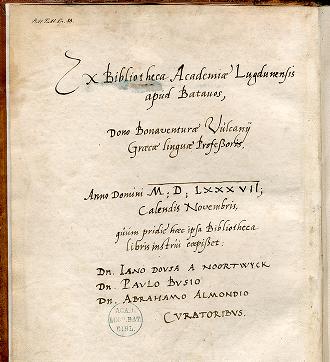 Ex Bibliotheca Academiæ Lugdunensis
apud Batavos,
Dono Bonaventuræ Vulcanij
Græcæ linguæ Professoris.
Anno Domini M. D. LXXXVII;
Calendis Novembris,
quum pridie hæc ipsa Bibliotheca
libris instrui cœpisset.
Dn. Iano Dousa a Noortwyck
Dn. Paulo Busio
Dn. Abrahamo Almondio
Curatoribus.
ACAD.
LUGD. BAT.
BIBL.